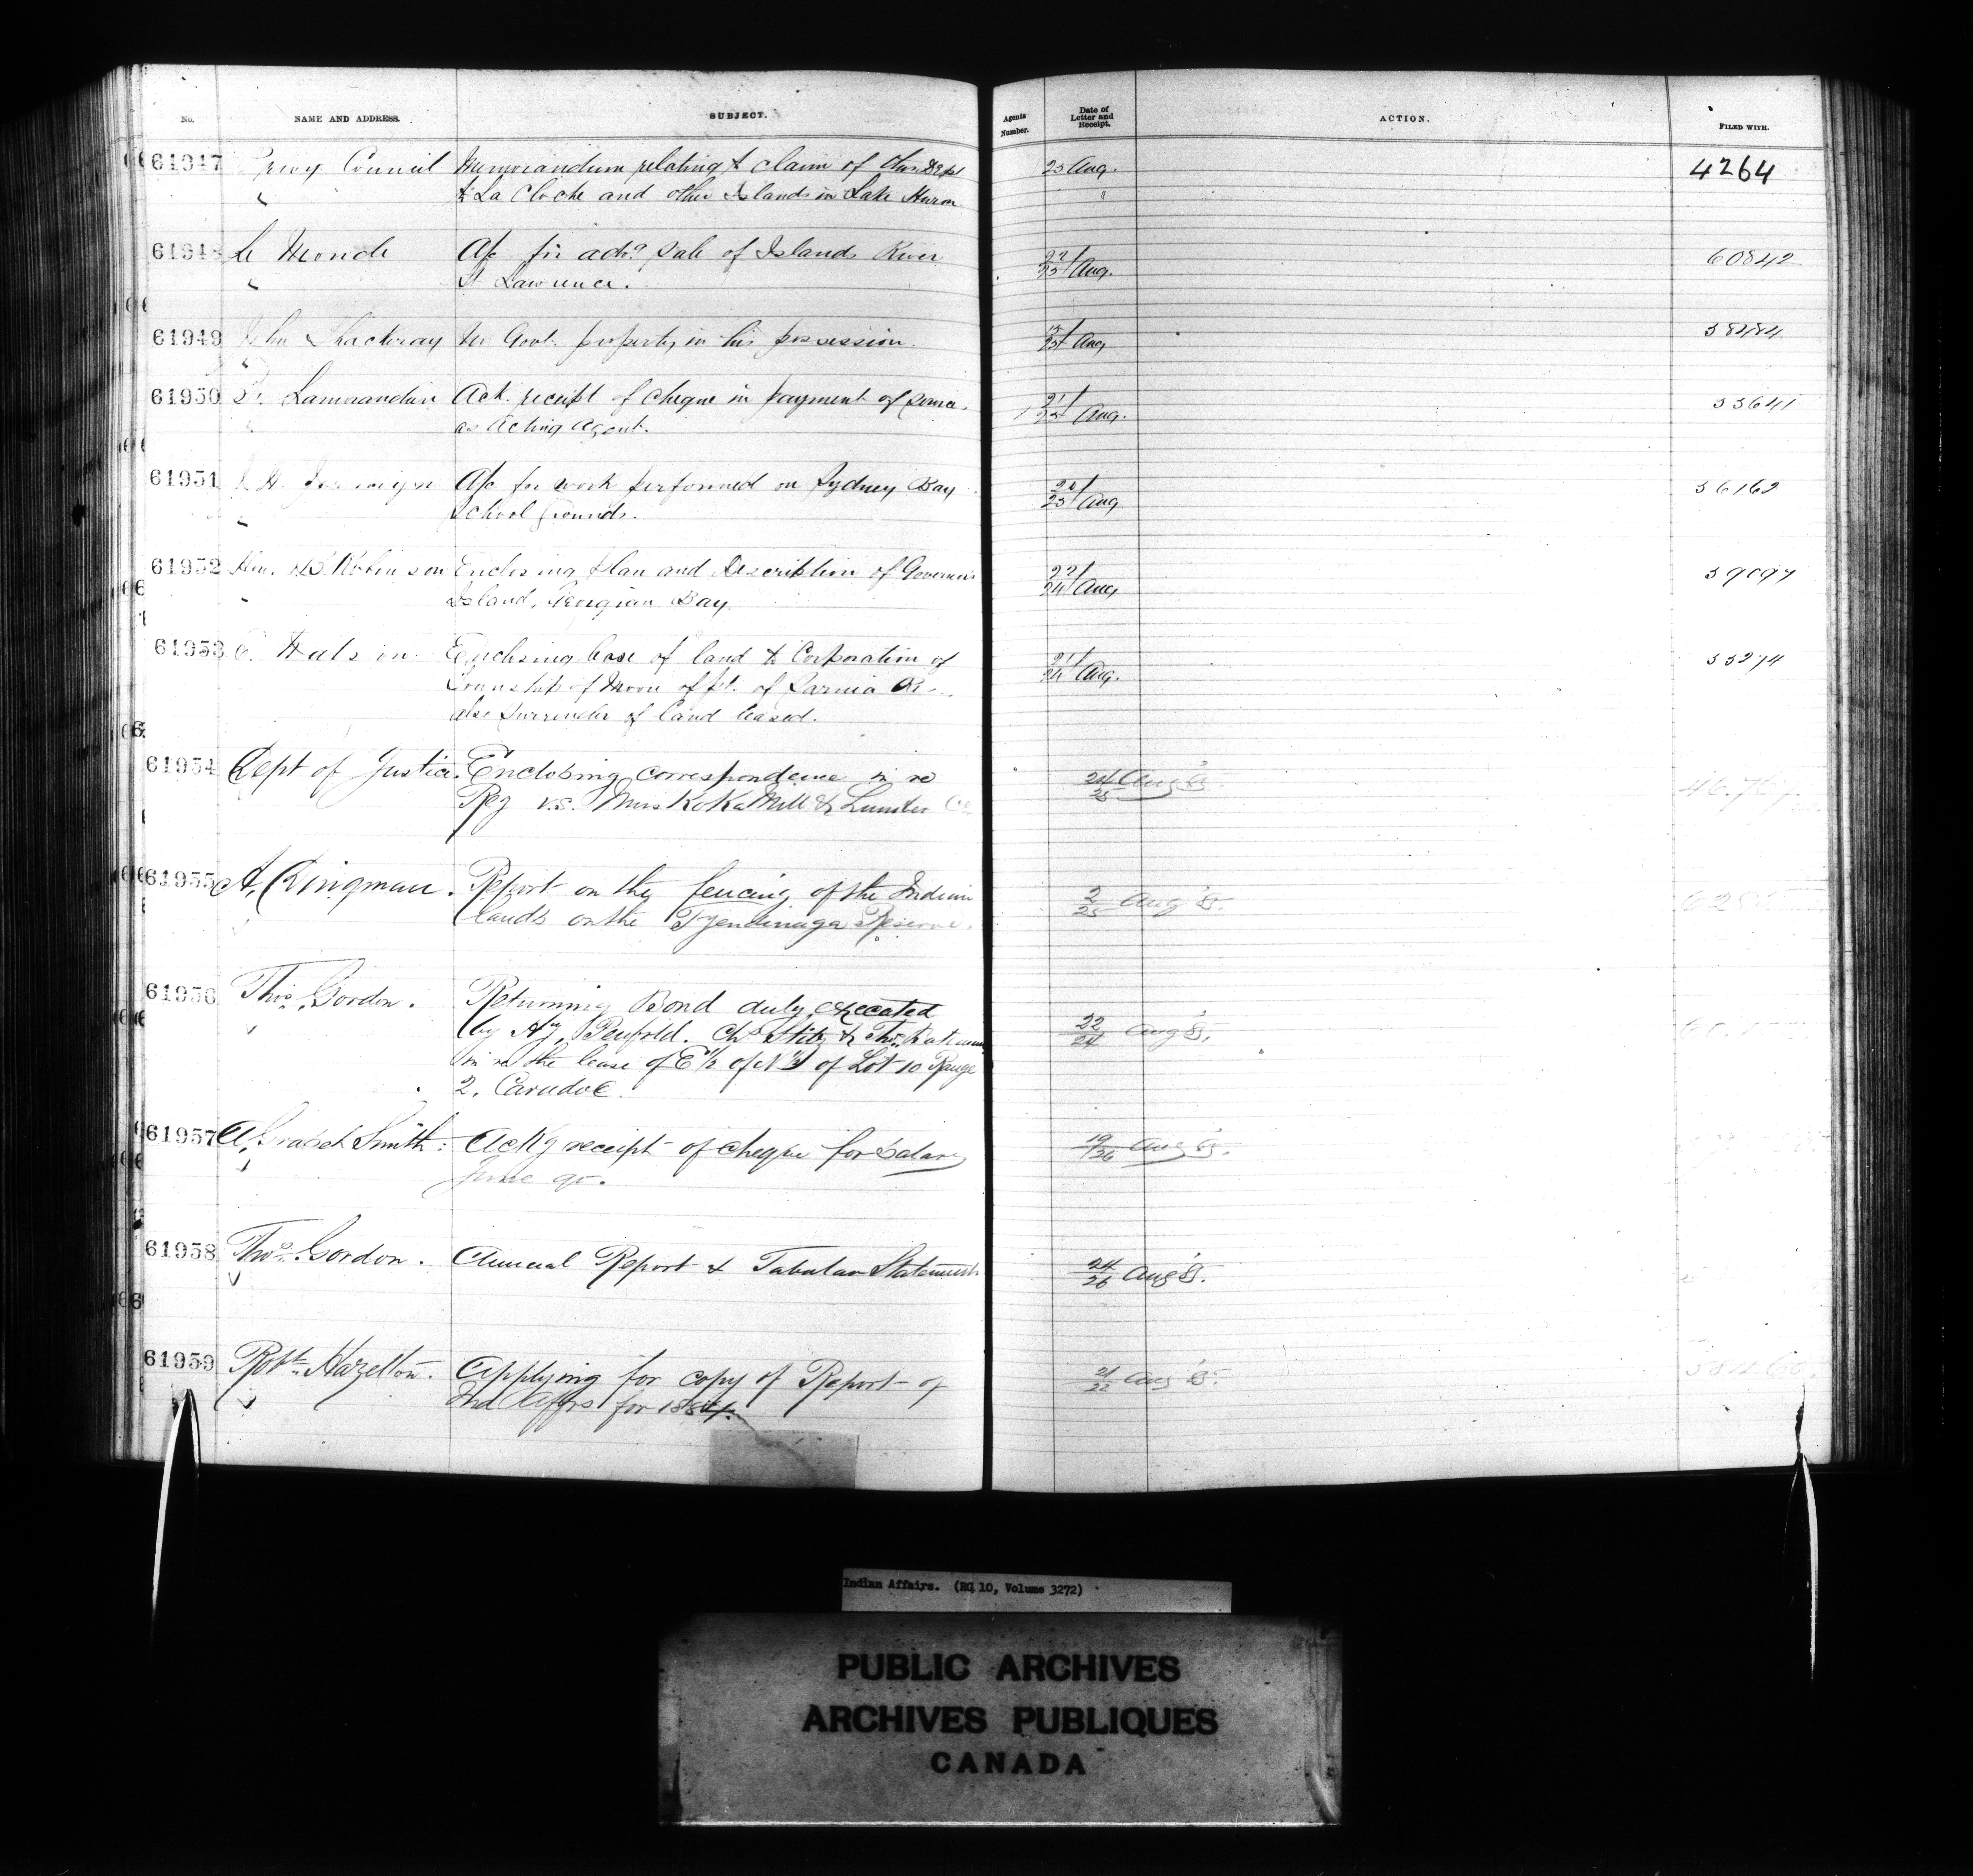 No. NAME AND ADDRESS. SUBJECT. Agents Number. Date of Letter and Receipt. ACTION. FILED WITH.
61947 Privy Council Memorandum relating to claim of this Dept 25 Aug. 4264
" to La Cloche and other Islands in Lake Huron "
61948 Le Monde A/c for advg sale of Islands River 22/25 Aug. 60842
" St Lawrence.
61949 John Thackeray re Govt. property in his possession. 25 Aug 38484
"
61950 Lamorandiere Ack. receipt of cheque in payment of 21/25 Aug. 33641
" as Acting Agent.
61951 A/c for work performed on Sydney Bay 20/25 Aug 36162
" School Grounds.
61952 Hon. Robinson Enclosing plan and Description of Governors 22/24 Aug
" Island, Georgian Bay.
61953 E. Watson Enclosing lease of land to Corporation of 21/24 Aug. 33274
Township of Moore of pt. of Sarnia R
also surrender of land leased.
61954 Dept of Justice. Enclosing correspondence in re 24/25 Aug 85. 46.767
Reg v.s. Muskoka Mill & Lumber Co
61955 A, Dingman. Report on the fencing of the Indian 2/25 Aug 85.
" lands on the Tyendinaga Reserve.
61956 Thos. Gordon. Returning Bond duly executed 22/24 Aug 85.
" by Hy. Penfold. Chs Stitz & Thos.
in re the lease of E ½ of N ½ of Lot 10 Range
2. Caradoc.
61957 A, Smith: Ackg receipt of cheque for Salary 19/26 Aug 85.
" June qr.
61958 Thos. Gordon. Annual Report & Tabular Statement 24/26 Aug 85.
"
61959 Robt. Hazelton. Applying for copy of Report of 21/22 Aug 85.
" Ind Affrs for 1884.
Indian Affairs. (RG 10, Volume 3272)
PUBLIC ARCHIVES
ARCHIVES PUBLIQUES
CANADA